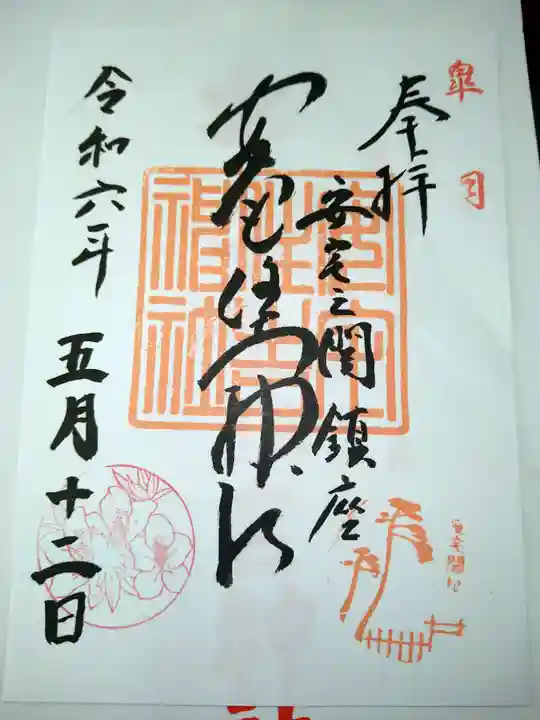 皐月
奉拝
安宅之関鎮座
安宅住吉神社
安宅住吉神社
令和六年
五月十二日